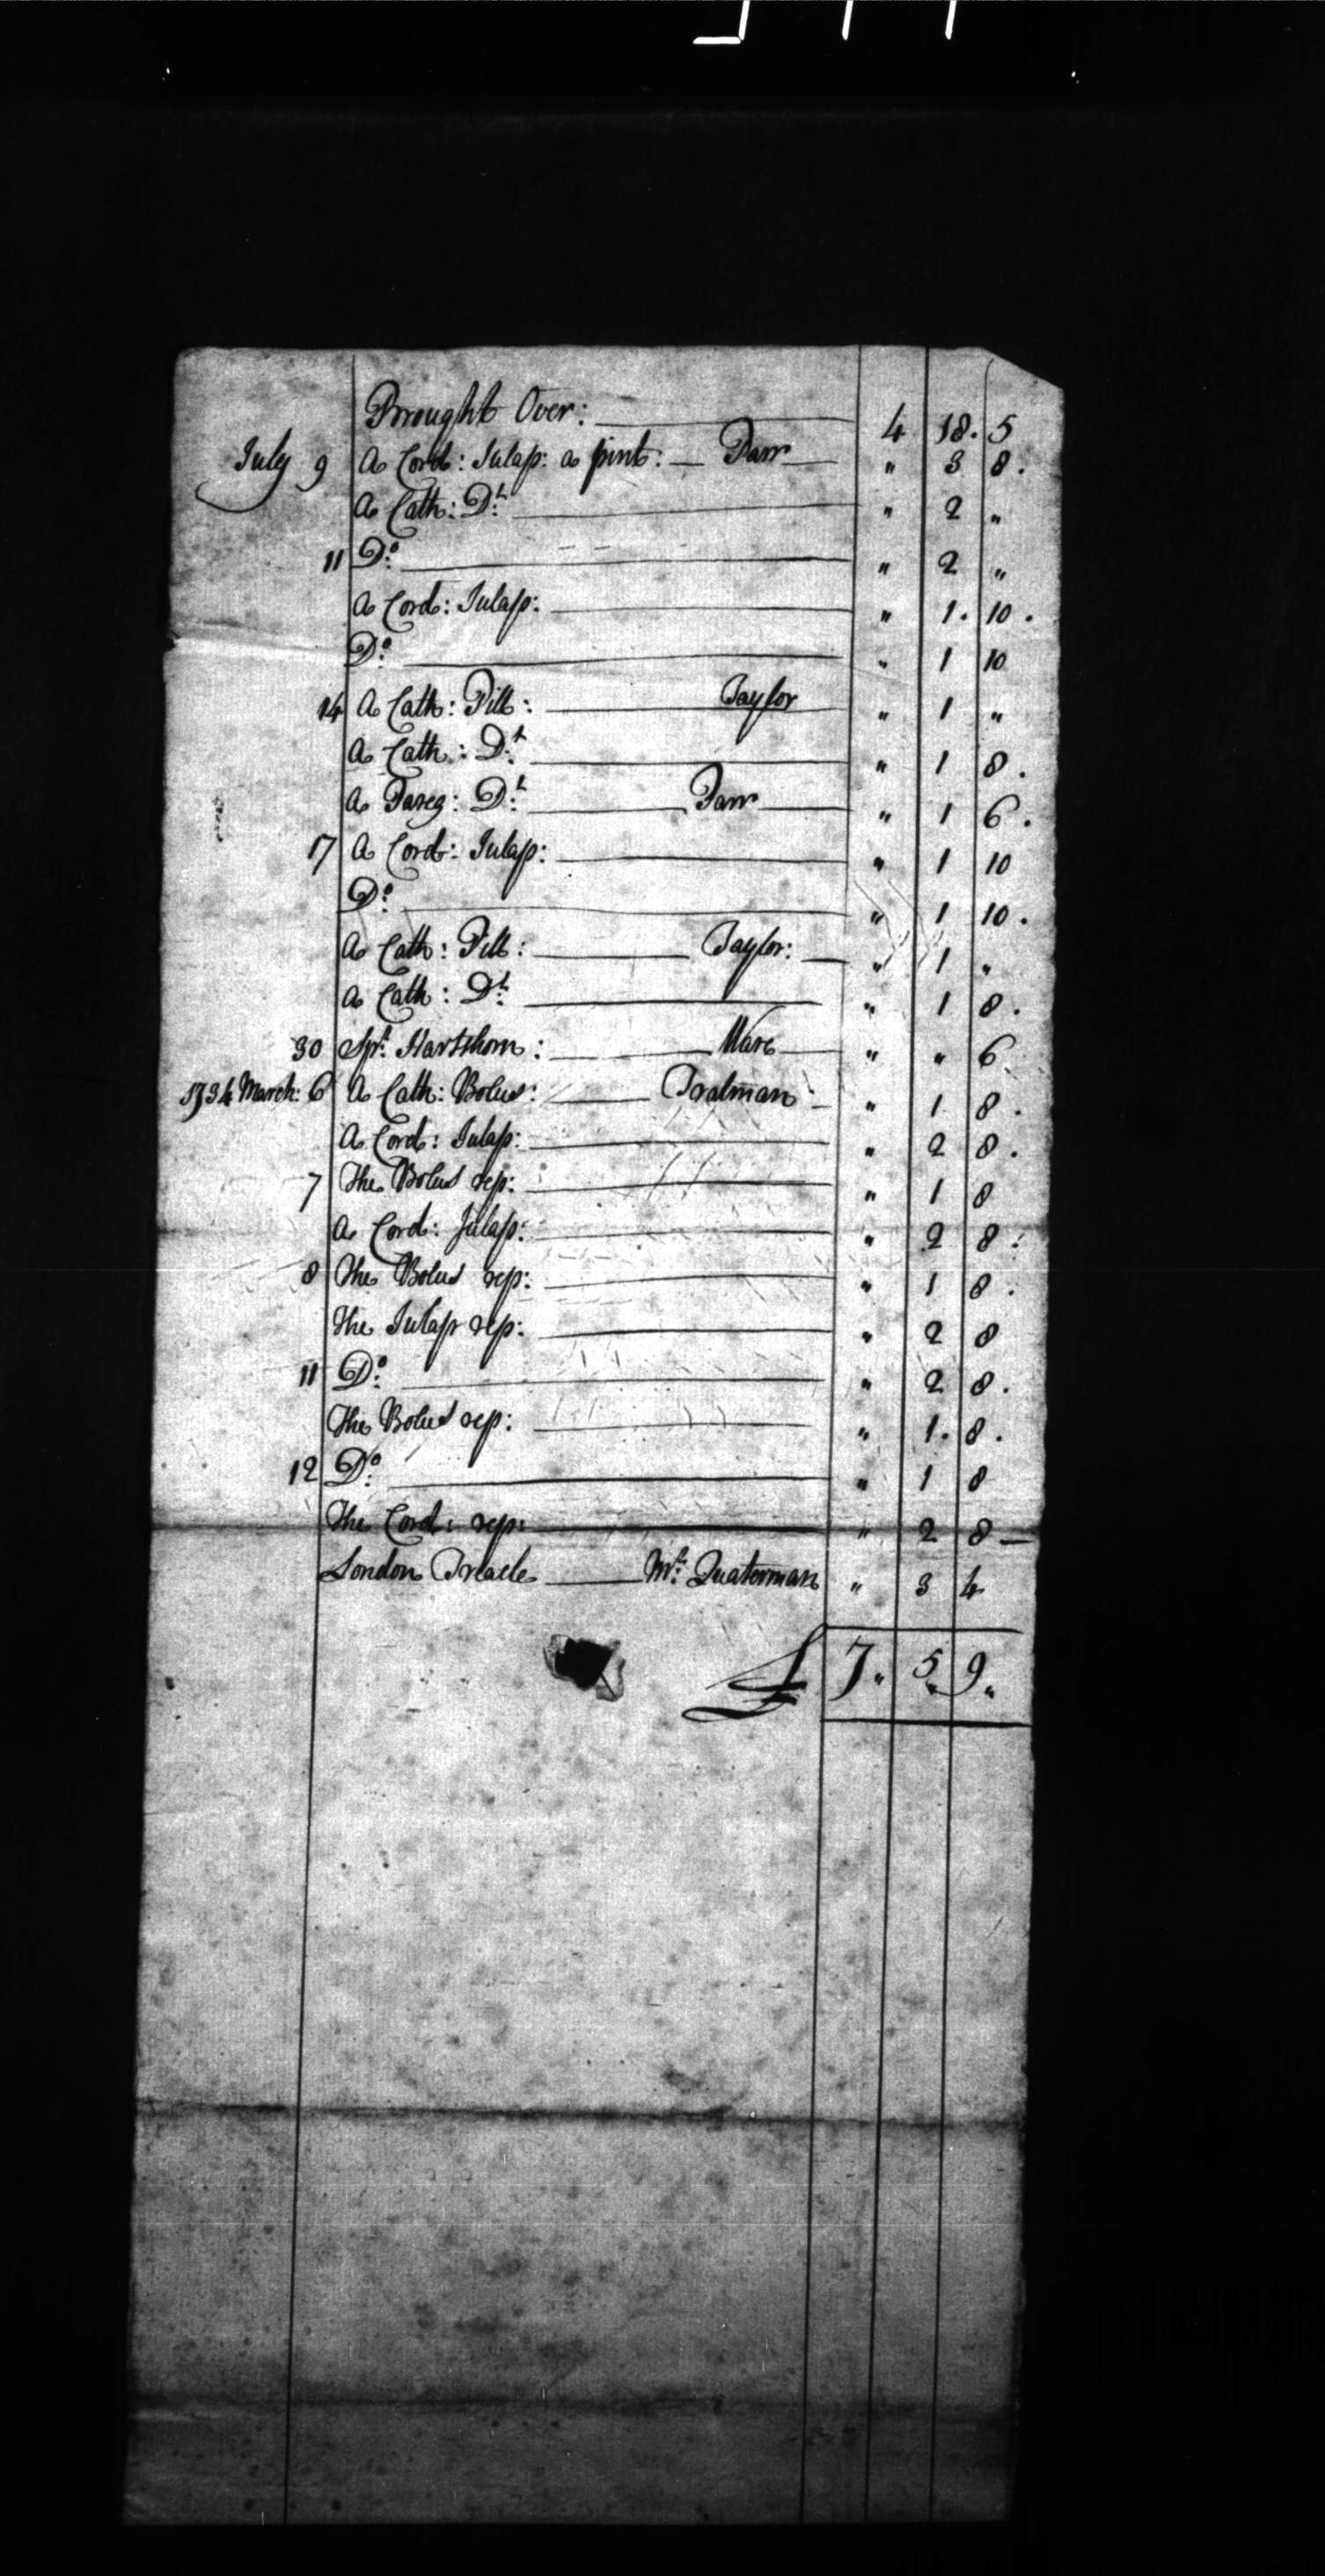 Brought Over: 4 18. 5
July 9 A Cord: Julap: a pint: Parr " 3 8.
A Cath: Dt: " 2 "
11 Do: " 2 "
A Cord: Julap: " 1. 10.
Do: " 1 10
14 A Cath: Pill: Taylor " 1 "
A Cath: Dt: " 1 8.
A Pareg: Dt: Parr " 1 6.
17 A Cord: Julap: " 1 10
Do: " 1 10.
A Cath: Pill: Taylor: " 1 "
A Cath: Dt: " 1 8.
30 Spt: Hartshorn: Ware " " 6
1734 March: 6 A Cath: Bolus: " 1 8.
A Cord: Julap: " 2 8.
7 The Bolus rep: " 1 8
A Cord: Julap: " 2 8.
8 The Bolus rep: " 1 8.
The Julap rep: " 2 8
11 Do: " 2 8.
The Bolus rep: " 1. 8.
12 Do: " 1 8
The Cord: rep: " 2 8
London Treacle Mr: Quaterman " 3 4
£ 7" 5" 9"